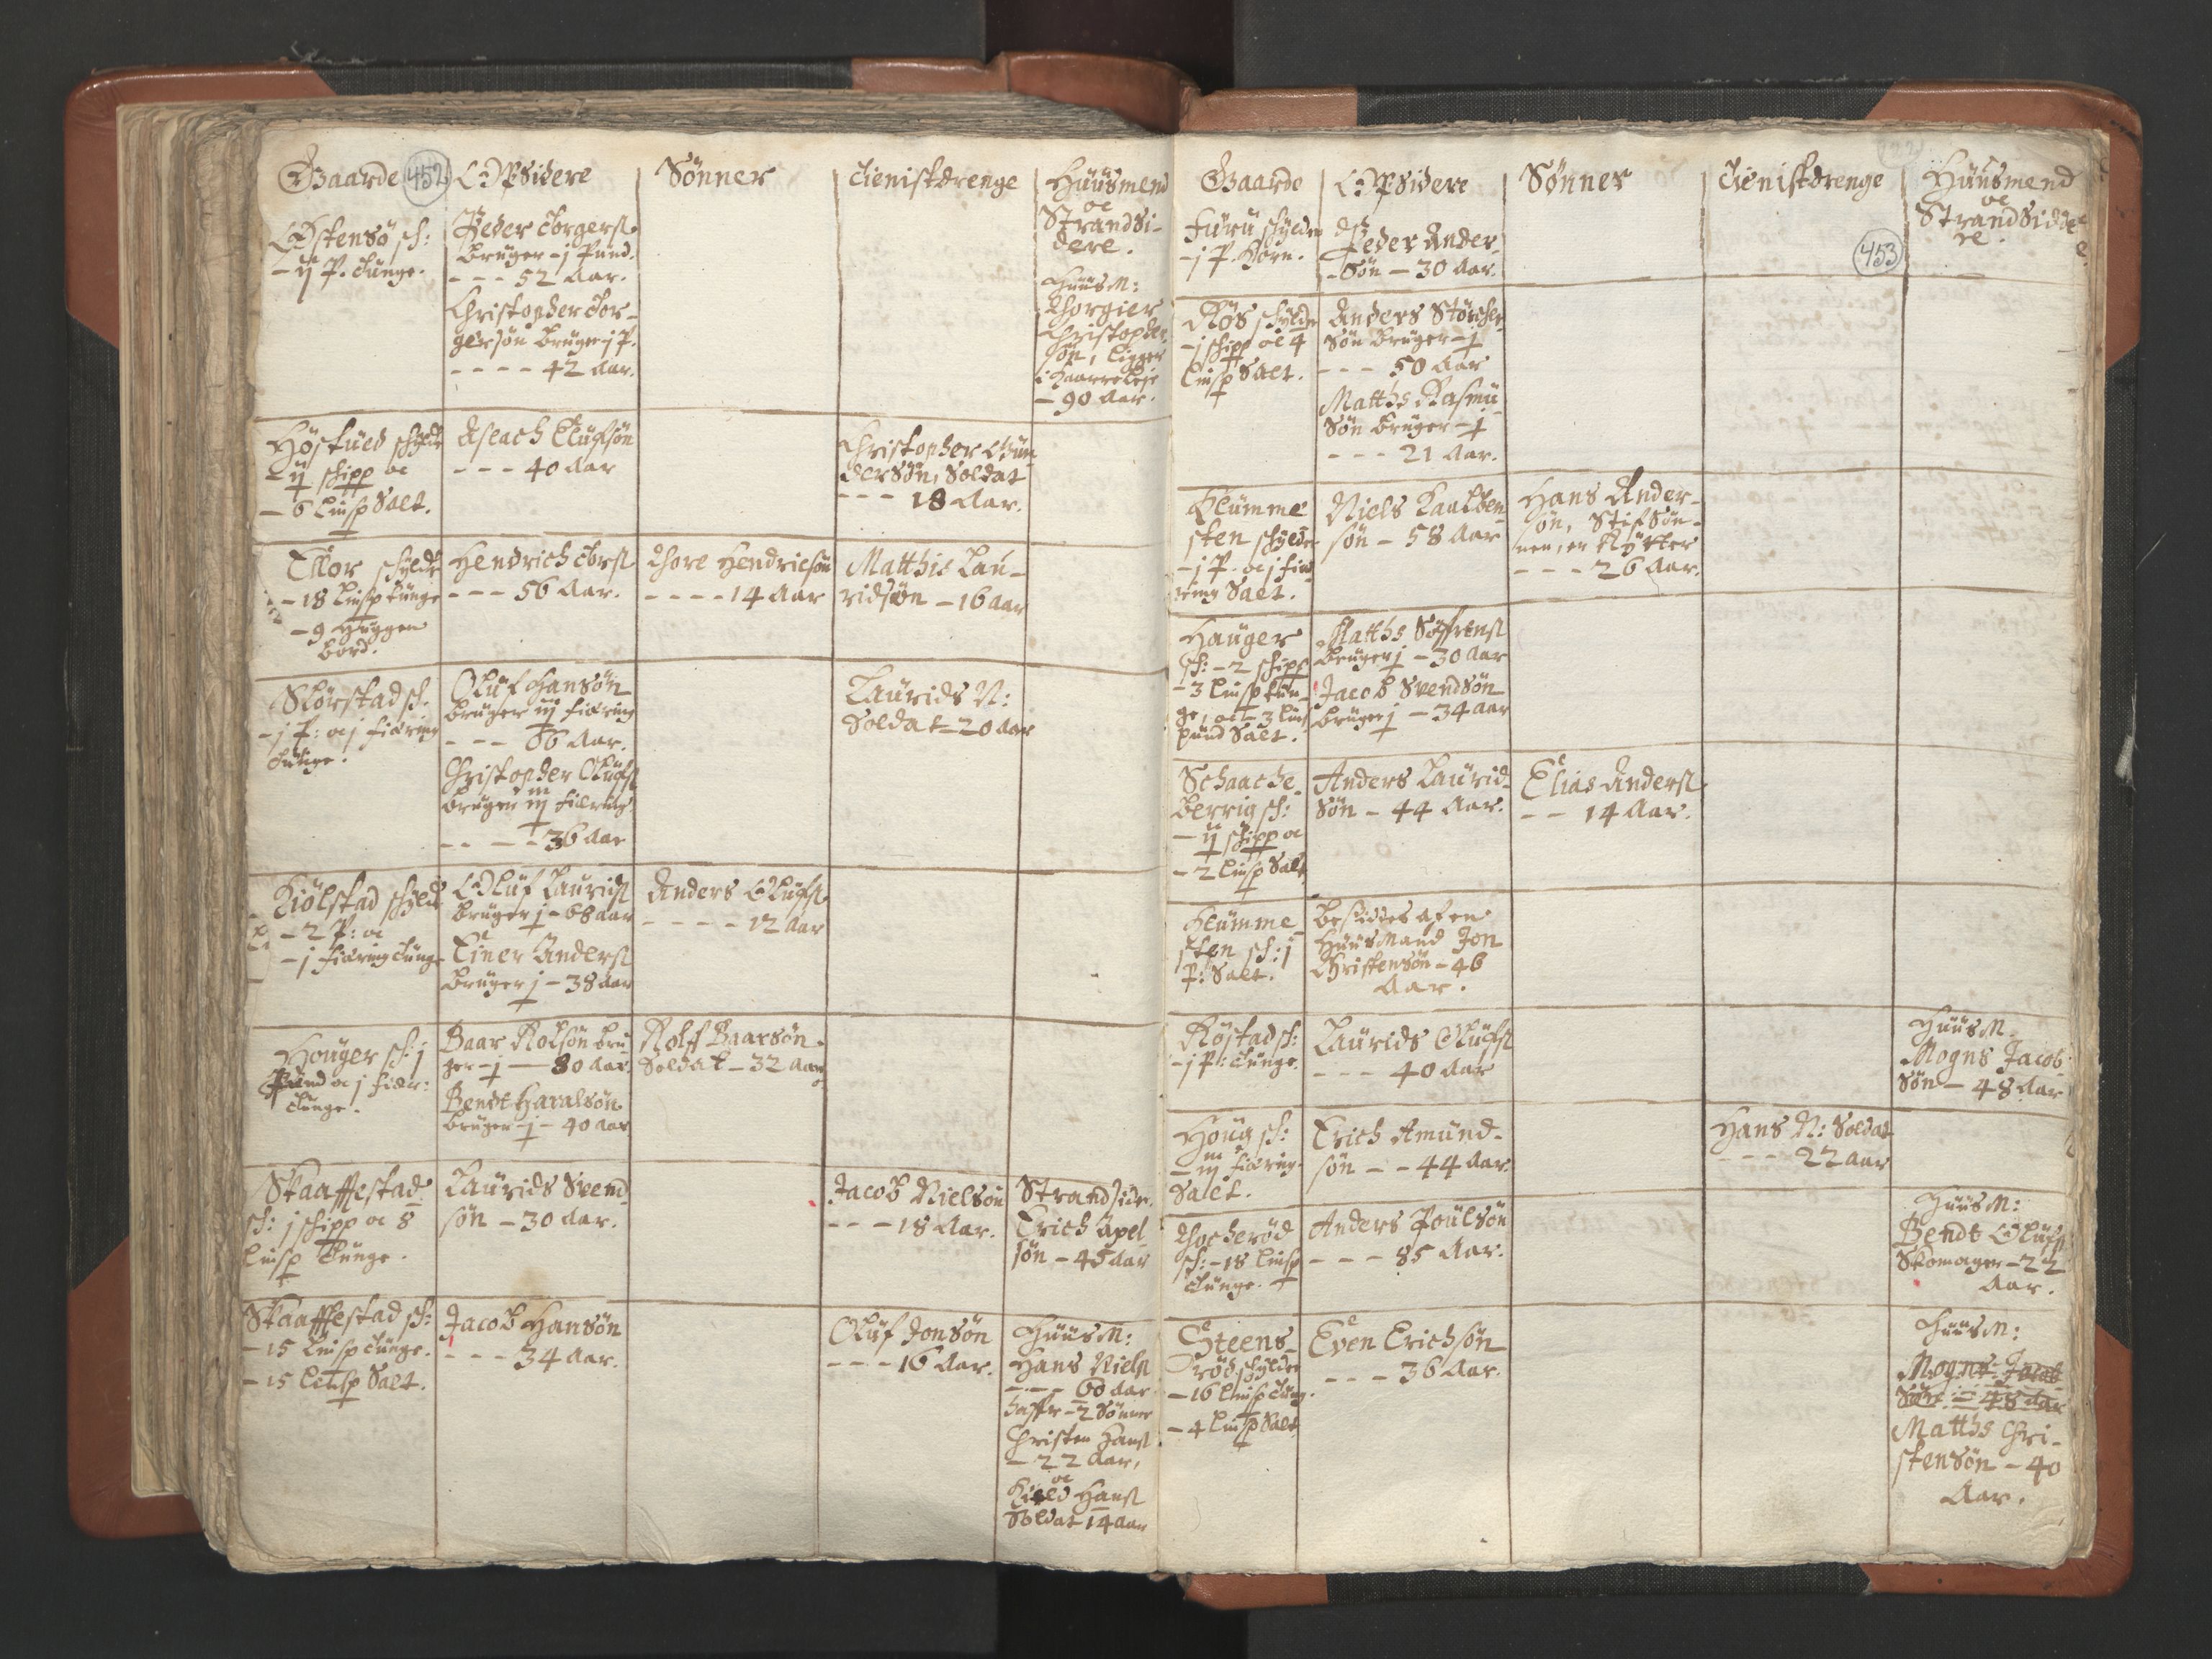 Gaarde
452
Opsidere
Sønner
Tienistdrenge
Huusmend
oc
Strandsi-
dere.
Ostensø sch:
- ij P. Tunge.
Peder Torgers.
bruger - j Pund.
- - - 52 Aar.
Christopher Tor-
gersøn bruger j P.
- - - - 42 Aar.
HuusM:
Thorgier
Christopher
søn, ligger
i Kaarreleje
- 90 Aar.
Høstued schylder
- ij schipp oc
- 6 Lisp Salt.
Aslach Elufsøn
- - - 40 Aar
Christopher Gun
dersøn, Soldat
- - - 18 Aar.
schylder
- 18 Lisp tunge
- 9 Huggen
bord.
Hendrich Tors.
- - - 56 Aar.
Thore Hendricsøn
- - - - 14 Aar
Matthis Lau-
ridsøn - 16 aar
Slørstad sch.
- j P: oc j fiæring
Tunge.
Oluf Hansøn
bruger iij fiæring
- - - 66 Aar.
Christopher Olufs.
bruger iij fiæring
- - - - 36 Aar
Laurids N:
Soldat - 20 Aar
Kiölstad schylder
- 2 P: oc
- j fiæring tunge
Oluf Laurids.
bruger j - 68 aar
Einer Anders.
bruger j - 38 aar
Anders Olufs.
- - - - 12 Aar
Houger sch: j
Pund oc j fiær:
tunge.
Baar Rolsøn bru
ger - j - 80 aar.
Bendt Haralsøn
bruger - j - 40 aar
Rolf Baarsøn.
Soldat - 32 Aar
Skaaffestad
sch: j schipp oc 8
Lisp Tunge.
Laurids Svend
søn - 30 Aar.
Jacob Nielsøn
- - - 18 Aar.
Strandsidr.
Erich Apel
søn - 45 Aar
Skaaffestad sch:
- 15 Lisp tunge.
- 15 Lisp Salt.
Jacob Hansøn
- - - 34 Aar.
Oluf Jonsøn
- - - 16 Aar.
HuusM:
Hans Niels.
- - - 60 Aar
haffr - 2 Sønner
Christen Hans.
- 22 Aar,
oc
Kield Hans.
Soldat 14 aar
Gaarde
Opsidere
Sønner
Tienistdrenge
Huusmend
oc
Strandsidde
re.
453
Furu schylder
- j P. Korn.
Peder Ander
- søn - 30 Aar.
Røs schylder
- j schipp oc 4
Lisp Salt.
Anders Størcher
søn bruger - j
- - - 50 Aar
Matths Rasmu
søn bruger - j
- - - 21 Aar.
Flumme
sten schylder
- j P. oc j fiæ
ring Salt.
Niels Kaalben
søn - 58 Aar
Hans Ander-
søn, Stifsøn-
nen, en Rÿtter
- - - 26 Aar.
Hauger
sch: - 2 schipp
- 3 Lisp tun-
ge, oc - 3 Lis
pund Salt.
Matths Søffrens.
bruger j - 30 Aar
Jacob Svendsøn
bruger j - 34 aar
Schaache
berrig sch:
- ij schipp oc
- 2 Lisp Salt
Anders Laurid
søn - 44 Aar.
Elias Anders.
- - 14 Aar.
Flumme
sten sch: j
P: Salt.
Besiddes af en
HuusMand Jon
Christensøn - 46
Aar.
Røstad sch:
- j P: Tunge.
Laurids Olufs.
- - - 40 Aar
HuusM.
Mogns Jacob
søn - 48 Aar
Houg sch:
- iij fiæring
Salt.
Erich Amund-
søn - - 44 Aar.
Hans N: Soldat
- - - 22 aar
Thocherød
sch: - 18 Lisp
Tunge.
Anders Poulsøn
- - - 85 Aar.
HuusM:
Bendt Olufs.
Skomager - 22
Aar.
Steens-
rød schylder
- 16 Lisp tung.
- 4 Lisp Salt
Even Erichsøn
- - - 36 Aar.
HuusM:
Mogns Jacob
Søn - 48 Aar
Matths Chri-
stensøn - 40
Aar.